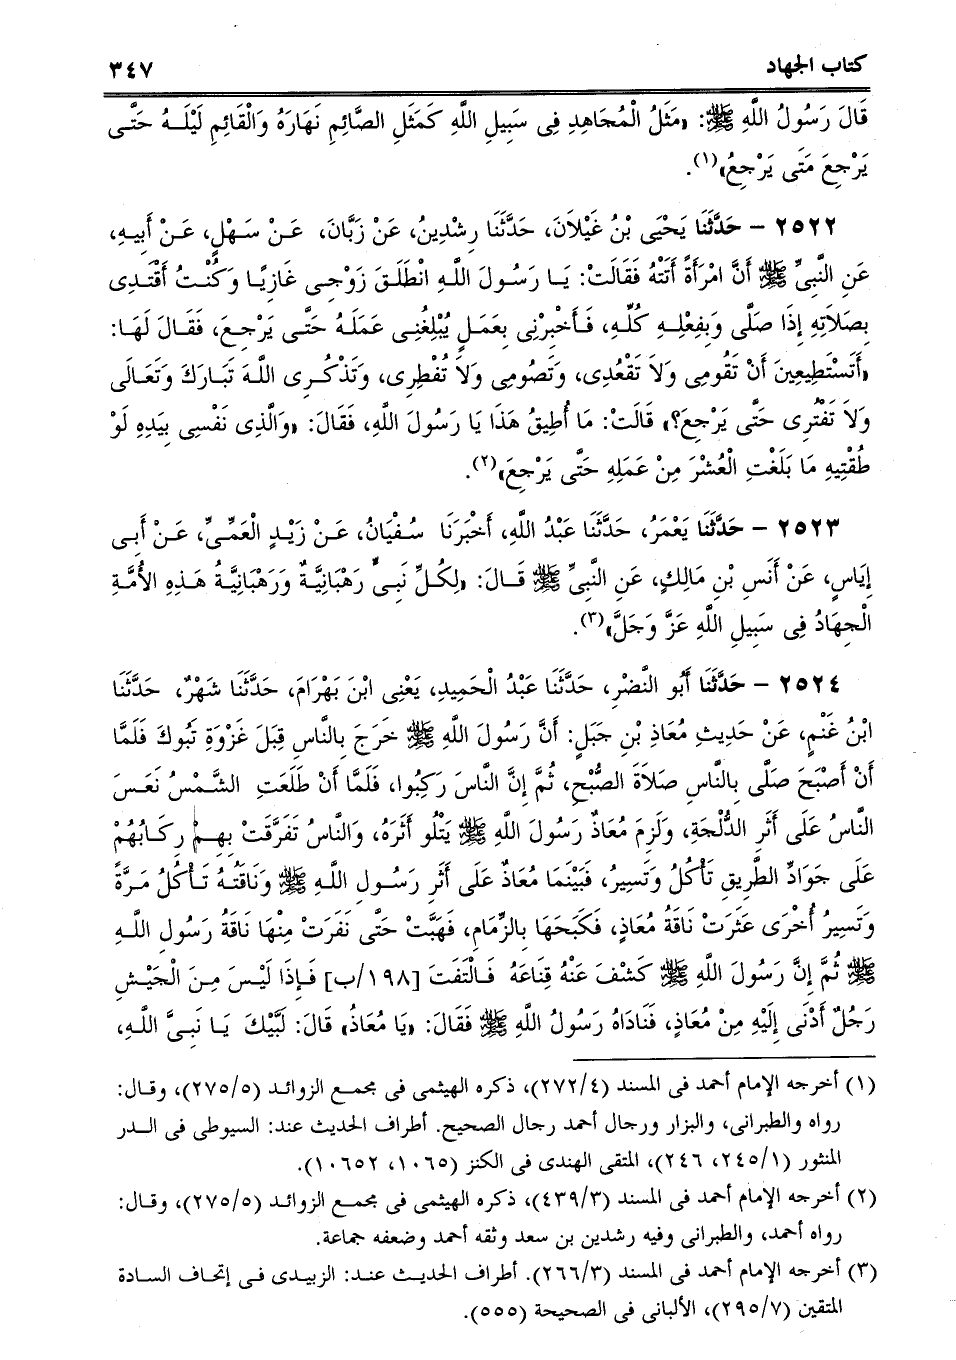 كتاب الجهاد ٣٤٧
قَالَ رَسُولُ اللَّهِ ﷺ: «مَثَلُ الْمُجَاهِدِ فِى سَبِيلِ اللَّهِ كَمَثَلِ الصَّائِمِ نَهَارَهُ وَالْقَائِمِ لَيْلَهُ حَتَّى
يَرْجِعَ مَتَى يَرْجِعُ»(١).
٢٥٢٢ - حَدَّثَنَا يَحْيَى بْنُ غَيْلَانَ، حَدَّثَنَا رِشْدِينُ، عَنْ زَبَّانَ، عَنْ سَهْلٍ، عَنْ أَبِيهِ،
عَنِ النَّبِىِّ ﷺ أَنَّ امْرَأَةً أَتَتْهُ فَقَالَتْ: يَا رَسُولَ اللَّهِ انْطَلَقَ زَوْجِى غَازِيًا وَكُنْتُ أَقْتَدِى
بِصَلَاتِهِ إِذَا صَلَّى وَبِفِعْلِهِ كُلِّهِ، فَأَخْبِرْنِى بِعَمَلٍ يُبْلِغُنِى عَمَلَهُ حَتَّى يَرْجِعَ، فَقَالَ لَهَا:
«أَتَسْتَطِيعِينَ أَنْ تَقُومِى وَلَا تَقْعُدِى، وَتَصُومِى وَلَا تُفْطِرِى، وَتَذْكُرِى اللَّهَ تَبَارَكَ وَتَعَالَى
وَلَا تَفْتُرِى حَتَّى يَرْجِعَ؟» قَالَتْ: مَا أُطِيقُ هَذَا يَا رَسُولَ اللَّهِ، فَقَالَ: «وَالَّذِى نَفْسِى بِيَدِهِ لَوْ
طُقْتِيهِ مَا بَلَغْتِ الْعُشْرَ مِنْ عَمَلِهِ حَتَّى يَرْجِعَ»(٢).
٢٥٢٣ - حَدَّثَنَا يَعْمَرُ، حَدَّثَنَا عَبْدُ اللَّهِ، أَخْبَرَنَا سُفْيَانُ، عَنْ زَيْدٍ الْعَمِّىِّ، عَنْ أَبِى
إِيَاسٍ، عَنْ أَنَسِ بْنِ مَالِكٍ، عَنِ النَّبِىِّ ﷺ قَالَ: «لِكُلِّ نَبِىٍّ رَهْبَانِيَّةٌ وَرَهْبَانِيَّةُ هَذِهِ الأُمَّةِ
الْجِهَادُ فِى سَبِيلِ اللَّهِ عَزَّ وَجَلَّ»(٣).
٢٥٢٤ - حَدَّثَنَا أَبُو النَّضْرِ، حَدَّثَنَا عَبْدُ الْحَمِيدِ، يَعْنِى ابْنَ بَهْرَامَ، حَدَّثَنَا شَهْرٌ، حَدَّثَنَا
ابْنُ غَنْمٍ، عَنْ حَدِيثِ مُعَاذِ بْنِ جَبَلٍ: أَنَّ رَسُولَ اللَّهِ ﷺ خَرَجَ بِالنَّاسِ قِبَلَ غَزْوَةِ تَبُوكَ فَلَمَّا
أَنْ أَصْبَحَ صَلَّى بِالنَّاسِ صَلَاةَ الصُّبْحِ، ثُمَّ إِنَّ النَّاسَ رَكِبُوا، فَلَمَّا أَنْ طَلَعَتِ الشَّمْسُ نَعَسَ
النَّاسُ عَلَى أَثَرِ الدُّلْجَةِ، وَلَزِمَ مُعَاذٌ رَسُولَ اللَّهِ ﷺ يَتْلُو أَثَرَهُ، وَالنَّاسُ تَفَرَّقَتْ بِهِمْ رِكَابُهُمْ
عَلَى جَوَادِّ الطَّرِيقِ تَأْكُلُ وَتَسِيرُ، فَبَيْنَمَا مُعَاذٌ عَلَى أَثَرِ رَسُولِ اللَّهِ ﷺ وَنَاقَتُهُ تَأْكُلُ مَرَّةً
وَتَسِيرُ أُخْرَى عَثَرَتْ نَاقَةُ مُعَاذٍ، فَكَبَحَهَا بِالزِّمَامِ، فَهَبَّتْ حَتَّى نَفَرَتْ مِنْهَا نَاقَةُ رَسُولِ اللَّهِ
ﷺ ثُمَّ إِنَّ رَسُولَ اللَّهِ ﷺ كَشْفَ عَنْهُ قِنَاعَهُ فَالْتَفَتَ [١٩٨/ب] فَإِذَا لَيْسَ مِنَ الْجَيْشِ
رَجُلٌ أَدْنَى إِلَيْهِ مِنْ مُعَاذٍ، فَنَادَاهُ رَسُولُ اللَّهِ ﷺ فَقَالَ: «يَا مُعَاذُ» قَالَ: لَبَّيْكَ يَا نَبِىَّ اللَّهِ،
(١) أخرجه الإمام أحمد فى المسند (٢٧٢/٤)، ذكره الهيثمى فى مجمع الزوائد (٢٧٥/٥)، وقال:
رواه والطبرانى، والبزار ورجال أحمد رجال الصحيح. أطراف الحديث عند: السيوطى فى الدر
المنثور (٢٤٥/١، ٢٤٦)، المتقى الهندى فى الكنز (١٠٦٥، ١٠٦٥٢).
(٢) أخرجه الإمام أحمد فى المسند (٤٣٩/٣)، ذكره الهيثمى فى مجمع الزوائد (٢٧٥/٥)، وقال:
رواه أحمد، والطبرانى وفيه رشدين بن سعد وثقه أحمد وضعفه جماعة.
(٣) أخرجه الإمام أحمد فى المسند (٢٦٦/٣). أطراف الحديث عند: الزبيدى فى إتحاف السادة
المتقين (٢٩٥/٧)، الألبانى فى الصحيحة (٥٥٥).